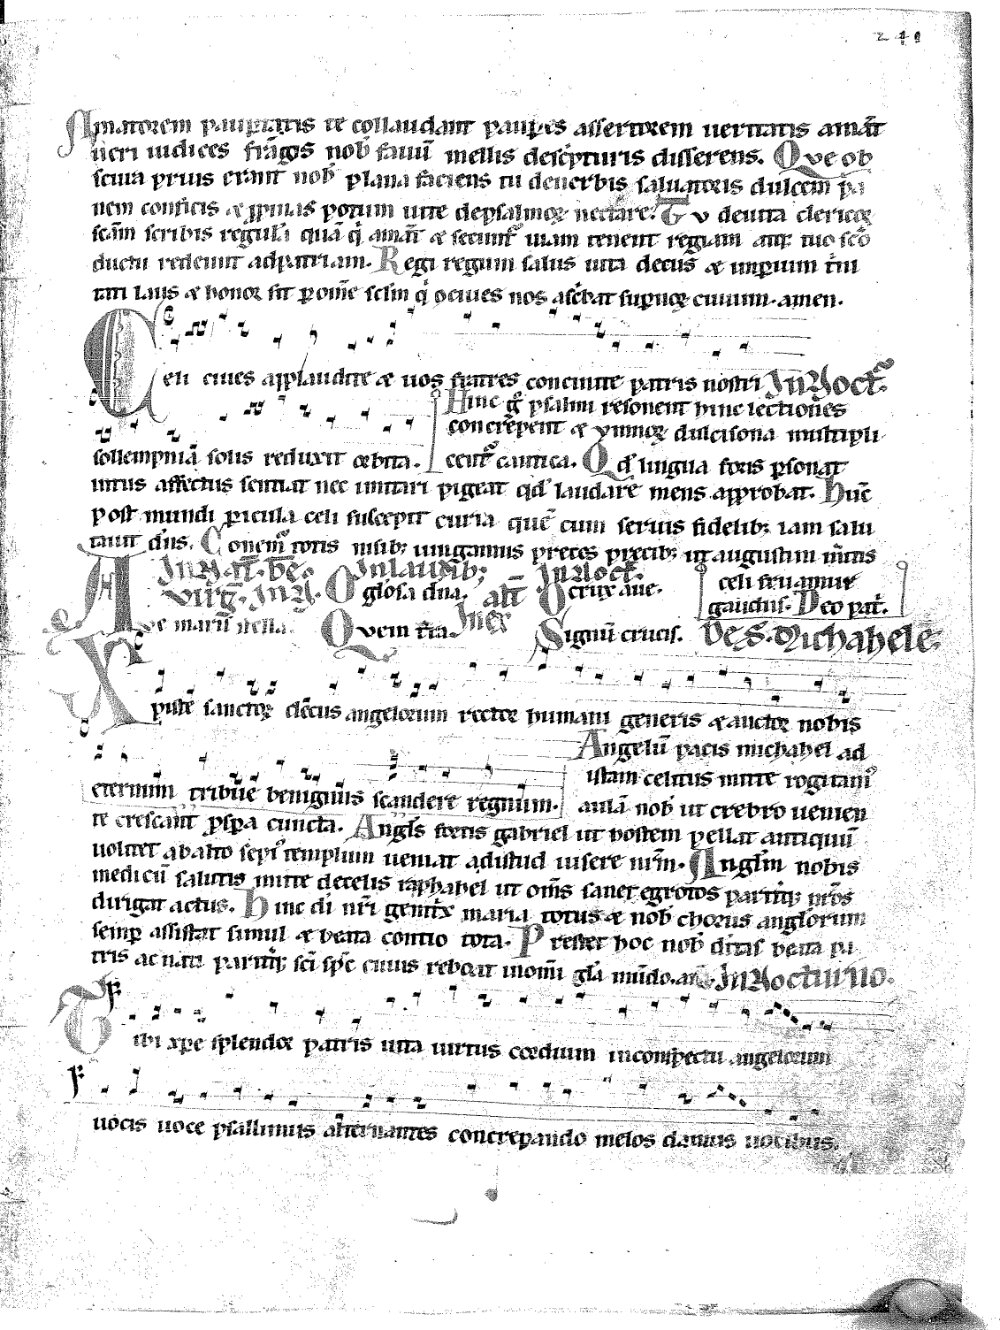 Amatorem paup̄tatis te collaudant paup̄es assertorem ueritatis amāt
ueri iudices frāgos nob̄ fauū mellis desc̄pturis disserens. Que ob
scura prius erant nob̄ plana faciens tu deuerbis saluatoris dulcem pa
nem conficis & ꝓpinas potum uite depsalmoꝝ nectare. Tu deuita clericoꝝ
scām scribis regulā quā q̄ amāt & secunt᷑ uiam tenent regiam atqꝫ tuo scō
ductu redeunt adpatriam. Regi regum salus uita decus & imꝑium t̄ni
tati laus & honor sit ꝑ om̄e sclm q̄ ꝯciues nos asc̄bat suꝑnoꝝ ciuium. amen.
Celi ciues applaudite & uos fratres concinite patris nostri In Noct᷑.
Hinc g̊ psalmi resonent hinc lectiones
concrepent & ymnoꝝ dulcisona multipli
sollempniā solis reduxit orbita. cent᷑ cantica. Qd̄ lingua foris ꝑsonat
intus affectus sentiat nec imitari pigeat qd̄ laudare mens approbat. Hūc
post mundi ꝑicula celi suscepit curia quē cum seruis fidelibꝫ iam salu
tauit dn̄s. Conem᷑ totis nisibꝫ iungamus preces precibꝫ ut augustini m̄itis
In Laudibꝫ In Noct᷑. celi fruamur
Virḡ. In N. O glōsa dn̄a. alt̄ O crux aue. gaudiis. Deo pat̄.
Aue maris stella. Quem t̄ra. Signū crucis. De S. Michahele.
Xpiste sanctoꝝ decus angelorum rector humani generis & auctor nobis
Angelū pacis michahel ad
istam celitus mitte rogitam᷑
eternum tribue benignus scandere regnum. aulā nob̄ ut crebro uenien
te crescant ꝓspa cuncta. Angl̄s fortis gabriel ut hostem pellat antiquū
uolitet abalto sepi᷑ templum ueniat adistud uisere nr̄m. Anglm̄ nobis
medicū salutis mitte decelis raphahel ut om̄s sanet egrotos pariterqꝫ nr̄os
dirigat actus. Hinc di nr̄i genitrix maria totus & nob̄ chorus anglorum
semꝑ assistat simul & beata contio tota. Prestet hoc nob̄ ditas beata pa
tris ac nati pariterqꝫ sci spc̄ cuius reboat inomi gl̄a mundo. am̄. In Nocturno.
Tibi xp̄e splendor patris uita uirtus cordium inconspectu angelorum
uocis uoce psallimus alternantes concrepando melos damus uocibus.